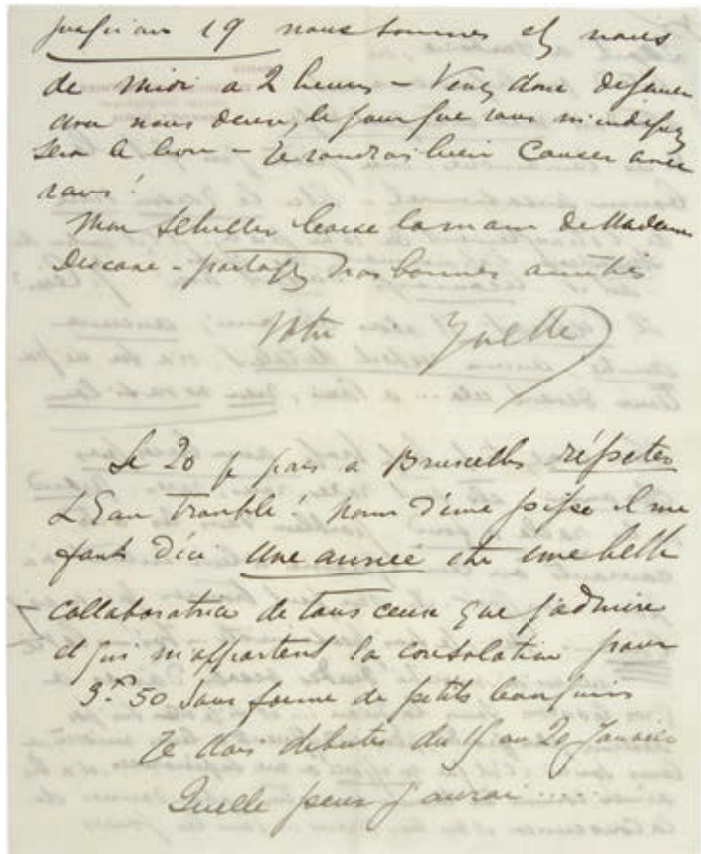 jusqu'au 19 nous sommes chez nous
de midi a 2 heures – Venez donc dejeuner
avec nous deux, le jour que vous m'indiquez
sera le bon – Je voudrais bien causer avec
vous!
Mon Schiller baise la main de Madame
Descave – partagez nos bonnes amitiés
Votre Yvette
Le 20 je pars a Bruxelles répeter
L'Eau trouble! Nom d'une pipe il me
faut d'ici une année etre une belle
collaboratrice de tous ceux que j'admire
et qui m'apportent la consolation pour
3.fr 50 sous forme de petits bouquins
Je dois debuter du 15 au 20 Janvier
Quelle peur j'aurai ......